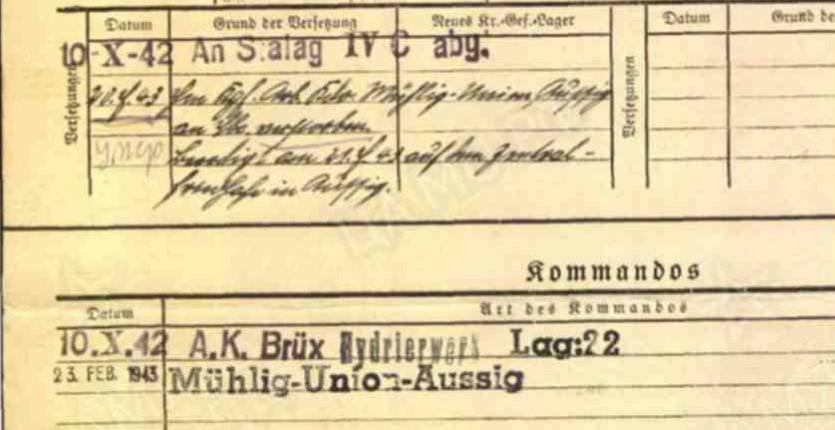 Datum Grund der Versetzung Neues Kr.-Gef.-Lager Datum Grund de
Versetzungen
10-X-42 An Stalag IV C abg.
43 Im Kgf. Arb. Kdo. Mühlig-Union Aussig
an Tbc. verstorben.
умер
Beerdigt am 43 auf dem Zentral-
friedhofe in Aussig.
Versetzungen
Kommandos
Datum Art des Kommandos
10.X.42 A.K. Brüx Hydrierwerk Lag:22
23. FEB. 1943 Mühlig-Union-Aussig